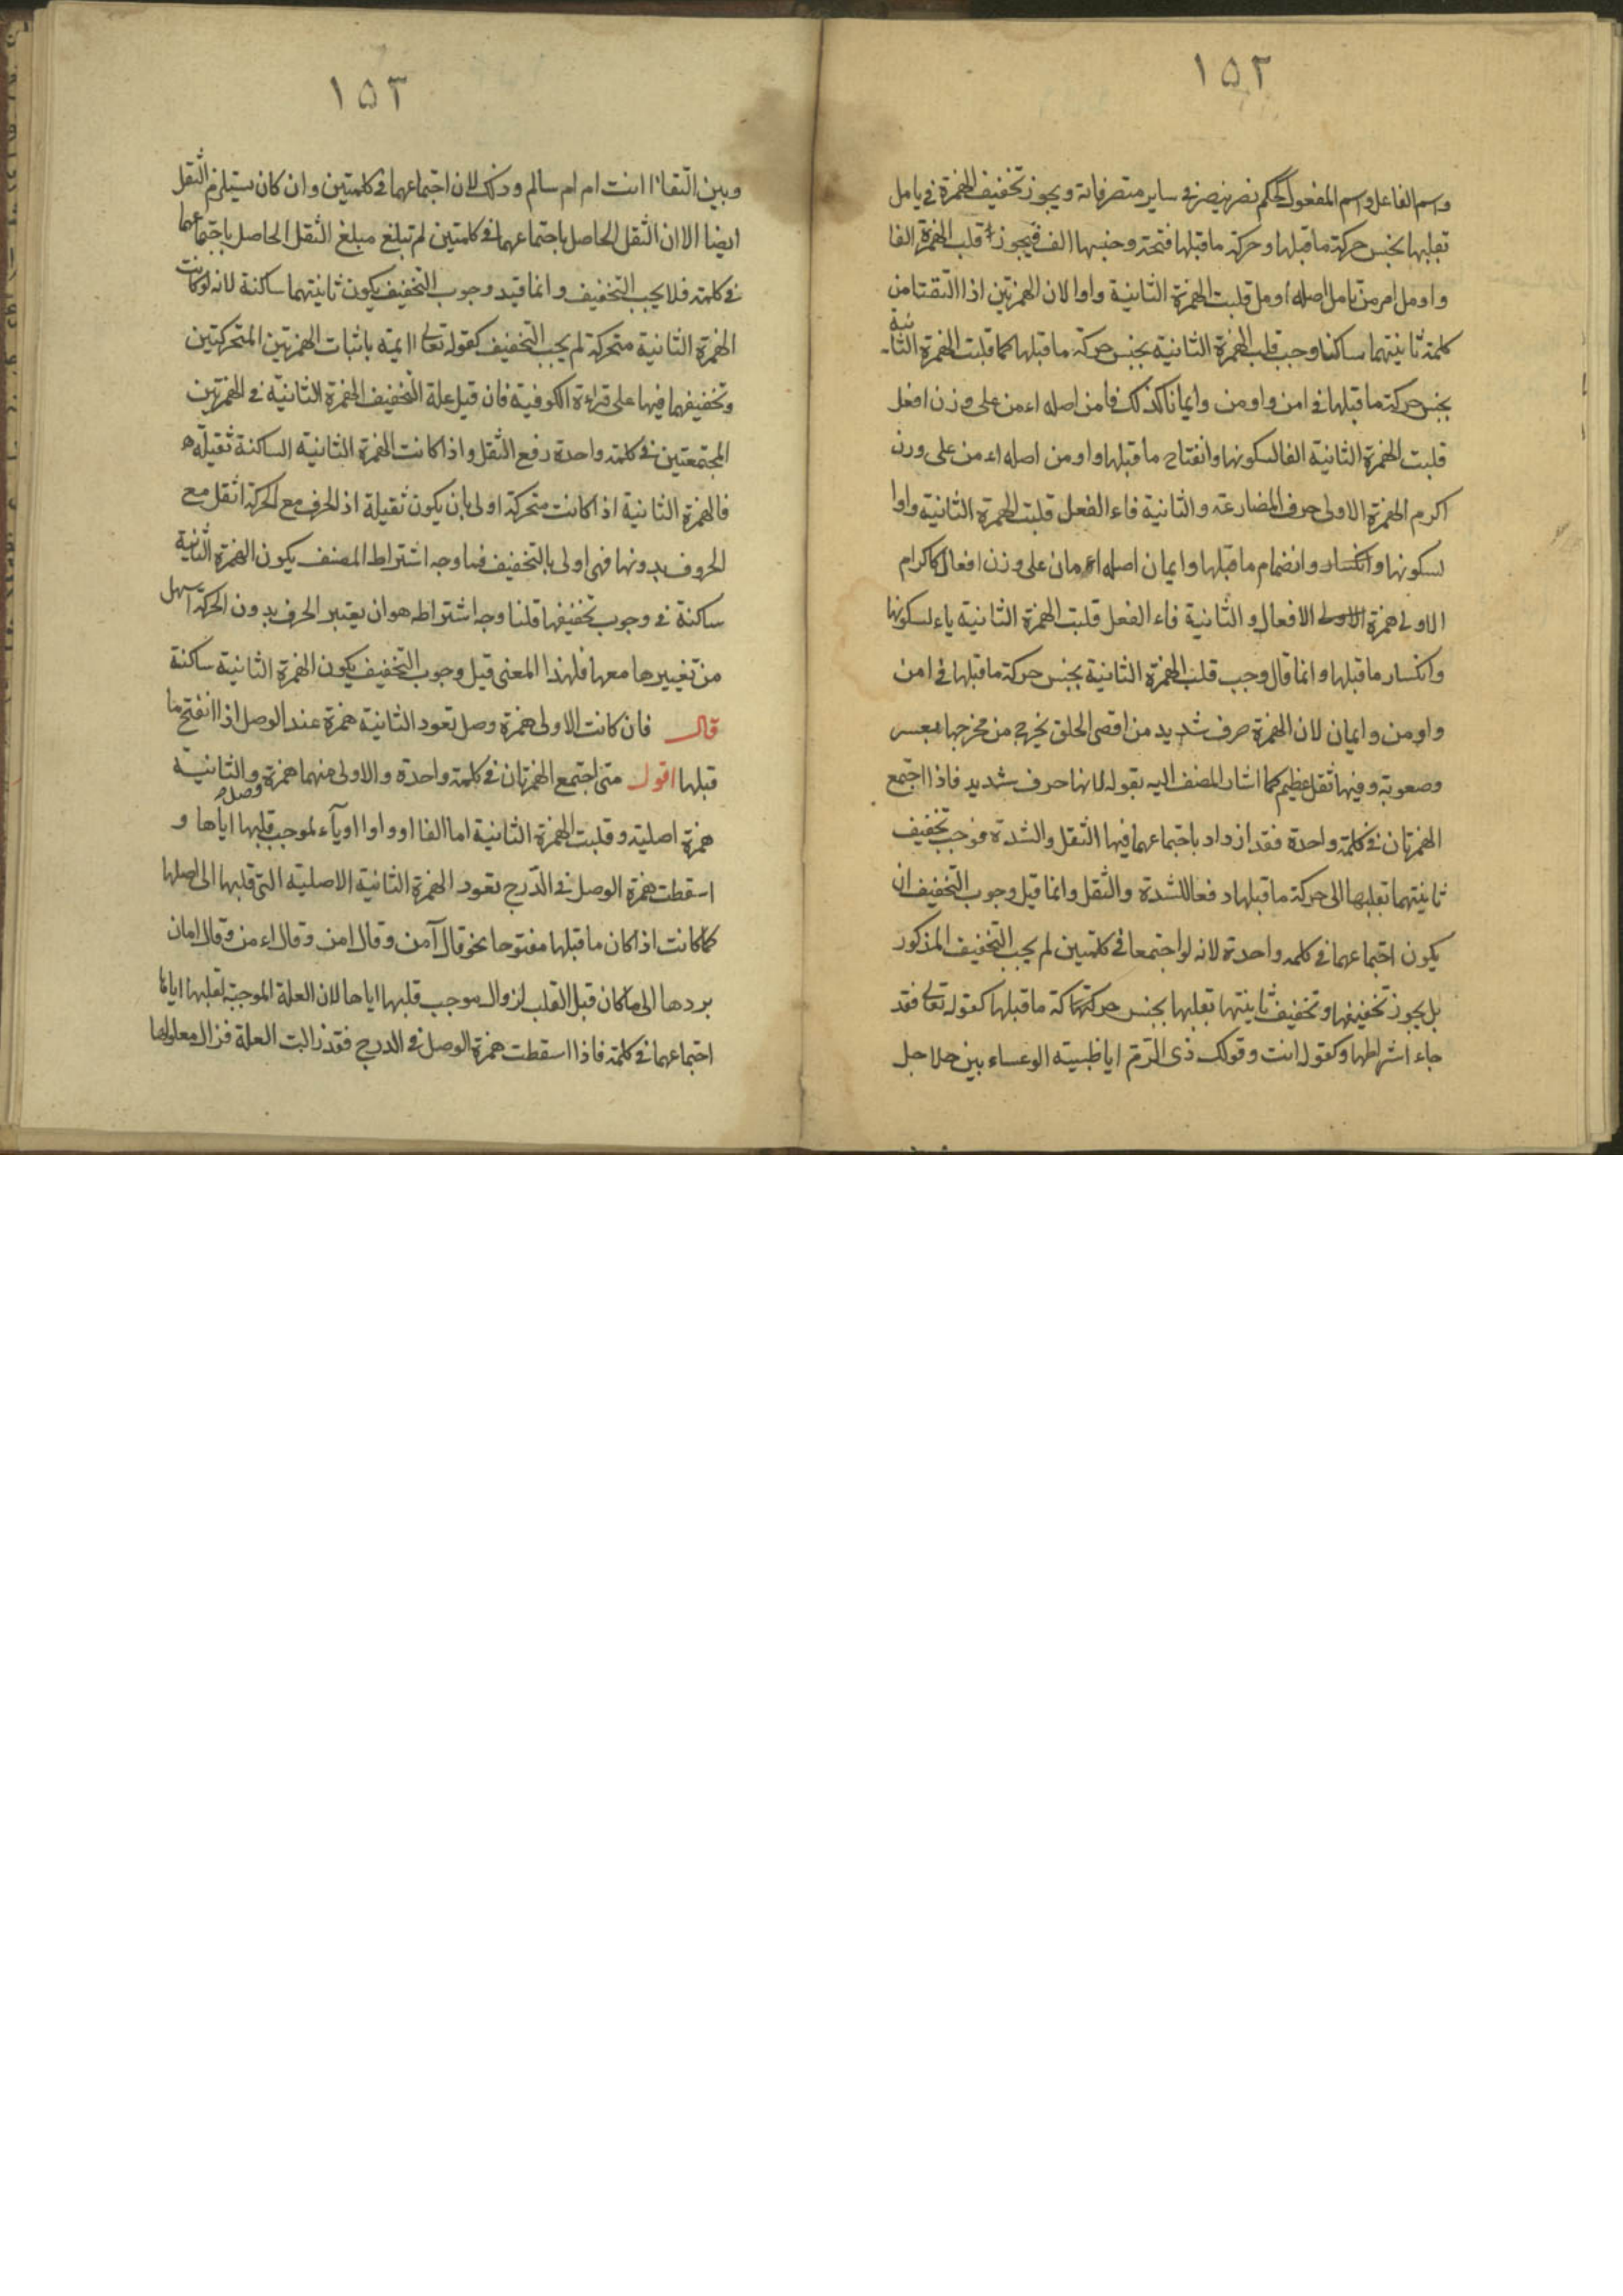 ١٥٢
واسم الفاعل واسم المفعول كحكم نصر ينصر في ساير متصرفاته ويجوز تخفيف الهمزة في يامل
بقلبها بجنس حركة ما قبلها وحركة ما قبلها فتحة وجنسها الف فيجوز قلب الهمزة الفا
واومل امر من تامل اصله اومل قلبت الهمزة الثانية واوا لان الهمزتين اذا التقتا من
كلمة ثانيتهما ساكنا وجب قلب الهمزة الثانية بجنس حركة ما قبلها كما قلبت الهمزة الثانية
بجنس حركة ما قبلها في امن واومن وايمانا كذلك فامن اصله اءمن على وزن افعل
قلبت الهمزة الثانية الفا لسكونها وانفتاح ما قبلها واومن اصله اءمن على وزن
اكرم الهمزة الاولى حرف المضارعة والثانية فاء الفعل قلبت الهمزة الثانية واوا
لسكونها وانكسار وانضمام ما قبلها وايمان اصله اءمان على وزن افعال كاكرام
الاولى همزة الاولى الافعال والثانية فاء الفعل قلبت الهمزة الثانية ياء لسكونها
وانكسار ما قبلها وانما قال وجب قلب الهمزة الثانية بجنس حركة ما قبلها في امن
واومن وايمان لان الهمزة حرف شديد من اقصى الحلق يخرج من مخرجها بعسر
وصعوبة وفيها ثقل عظيم كما اشار المصنف اليه بقوله لانها حرف شديد فاذا اجتمع
الهمزتان في كلمة واحدة فقد ازداد باجتماعهما فيها الثقل والشدة فوجب تخفيف
ثانيتهما بقلبها الى حركة ما قبلها دفعا للشدة والثقل وانما قيل وجوب التخفيف ان
يكون اجتماعهما في كلمة واحدة لانه لو اجتمعا في كلمتين لم يجب التخفيف المذكور
بل يجوز تخفيفها وتخفيف ثانيتها بقلبها بجنس حركة ما قبلها كقوله تعالى فقد
جاء اشراطها وكقوله اانت وقولك ذي الرمة ايا ظبية الوعساء بين جلاجل
١٥٣
وبين النقا اانت ام ام سالم وذلك لان اجتماعهما في كلمتين وان كان يستلزم الثقل
ايضا الا ان الثقل الحاصل باجتماعهما في كلمتين لم تبلغ مبلغ الثقل الحاصل باجتماعهما
في كلمة فلا يجب التخفيف وانما قيد وجوب التخفيف بكون ثانيتهما ساكنة لانه لو كانت
الهمزة الثانية متحركة لم يجب التخفيف كقوله تعالى اايمة باثبات الهمزتين المتحركتين
وتخفيفهما فيها على قراءة الكوفية فان قيل علة التخفيف الهمزة الثانية في الهمزتين
المجتمعتين في كلمة واحدة رفع الثقل واذا كانت الهمزة الثانية الساكنة ثقيلة
فالهمزة الثانية اذا كانت متحركة اولى بان يكون ثقيلة اذ الحرف مع الحركة اثقل مع
الحروف بدونها فهي اولى بالتخفيف فما وجه اشتراط المصنف بكون الهمزة الثانية
ساكنة في وجوب تخفيفها قلنا وجه اشتراطه هو ان يعتبر الحرف بدون الحركة اسهل
من تغييرها معها فلهذا المعنى قيل وجوب التخفيف بكون الهمزة الثانية ساكنة
قال فان كانت الاولى همزة وصل تعود الثانية همزة عند الوصل اذا انفتح ما
قبلها اقول متى اجتمع الهمزتان في كلمة واحدة والاولى منهما همزة وصل والثانية
همزة اصلية وقلبت الهمزة الثانية اما الفا او واوا او ياء لموجب قلبها اياها و
اسقطت همزة الوصل في الدرج تعود الهمزة الثانية الاصلية التي قلبها الى اصلها
كما كانت اذا كان ما قبلها مفتوحا نحو قال آمن وقال امن وقال اءمن وقال امان
بردها الى ما كان قبل القلب لزوال موجب قلبها اياها لان العلة الموجبة لقلبها اياها
اجتماعهما في كلمة فاذا اسقطت همزة الوصل في الدرج فقد زالت العلة فزال معلولها